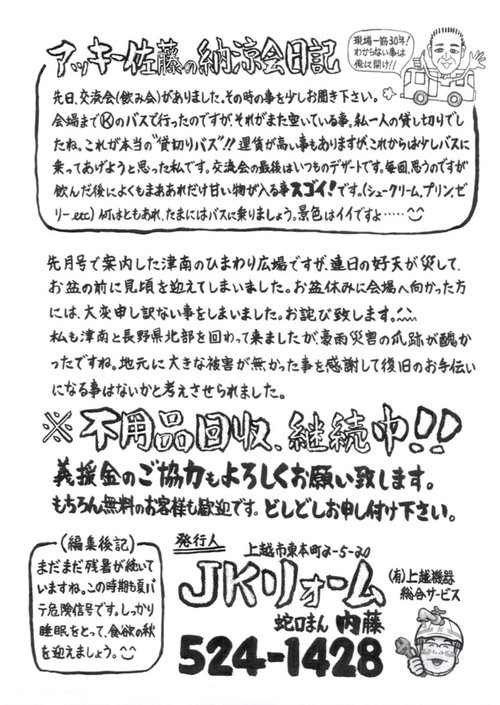 アッキー佐藤の納涼会日記
現場一筋30年!
わからない事は
俺に聞け!!
先日、交流会(飲み会)がありました。その時の事を少しお聞き下さい。
会場までⓀのバスで行ったのですが、それがまた空いている事。私一人の貸し切りでし
たね。これが本当の“貸切りバス”!!運賃が高い事もありますが、これからは少しバスに
乗ってあげようと思った私です。交流会の最後はいつものデザートです。毎回、思うのですが
飲んだ後によくもまああれだけ甘い物が入る事スゴイ!です。(シュークリーム、プリン、ゼ
リーetc)何はともあれ、たまにはバスに乗りましょう。景色はイイですよ……
先月号で案内した津南のひまわり広場ですが、連日の好天が災して、
お盆の前に見頃を迎えてしまいました。お盆休みに会場へ向かった方
には、大変申し訳ない事をしまいました。お詫び致します。
私も津南と長野県北部を回って来ましたが、豪雨災害の爪跡が醜か
ったですね。地元に大きな被害が無かった事を感謝して復旧のお手伝い
になる事はないかと考えさせられました。
※不用品回収、継続中!!
義援金のご協力もよろしくお願い致します。
もちろん無料のお客様も歓迎です。どしどしお申し付け下さい。
(編集後記)
まだまだ残暑が続いて
いますね。この時期も夏バ
テ危険信号です。しっかり
睡眠をとって、食欲の秋
を迎えましょう。
発行人
上越市東本町2-5-20
JKリォーム
(有)上越機器
総合サービス
蛇口まん 内藤
524-1428